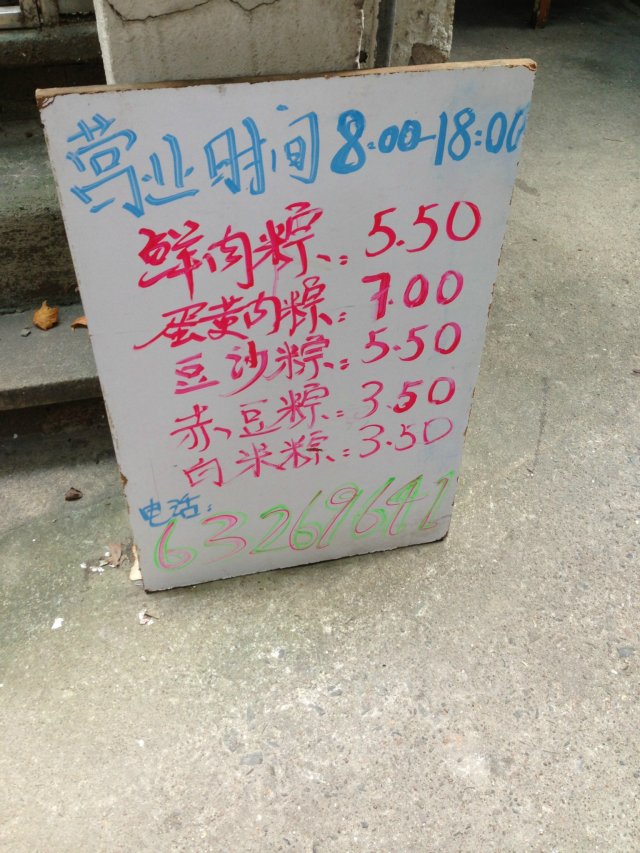 营业时间 8:00-18:00
鲜肉粽: 5.50
蛋黄肉粽: 7.00
豆沙粽: 5.50
赤豆粽: 3.50
白米粽: 3.50
电话:
63269641